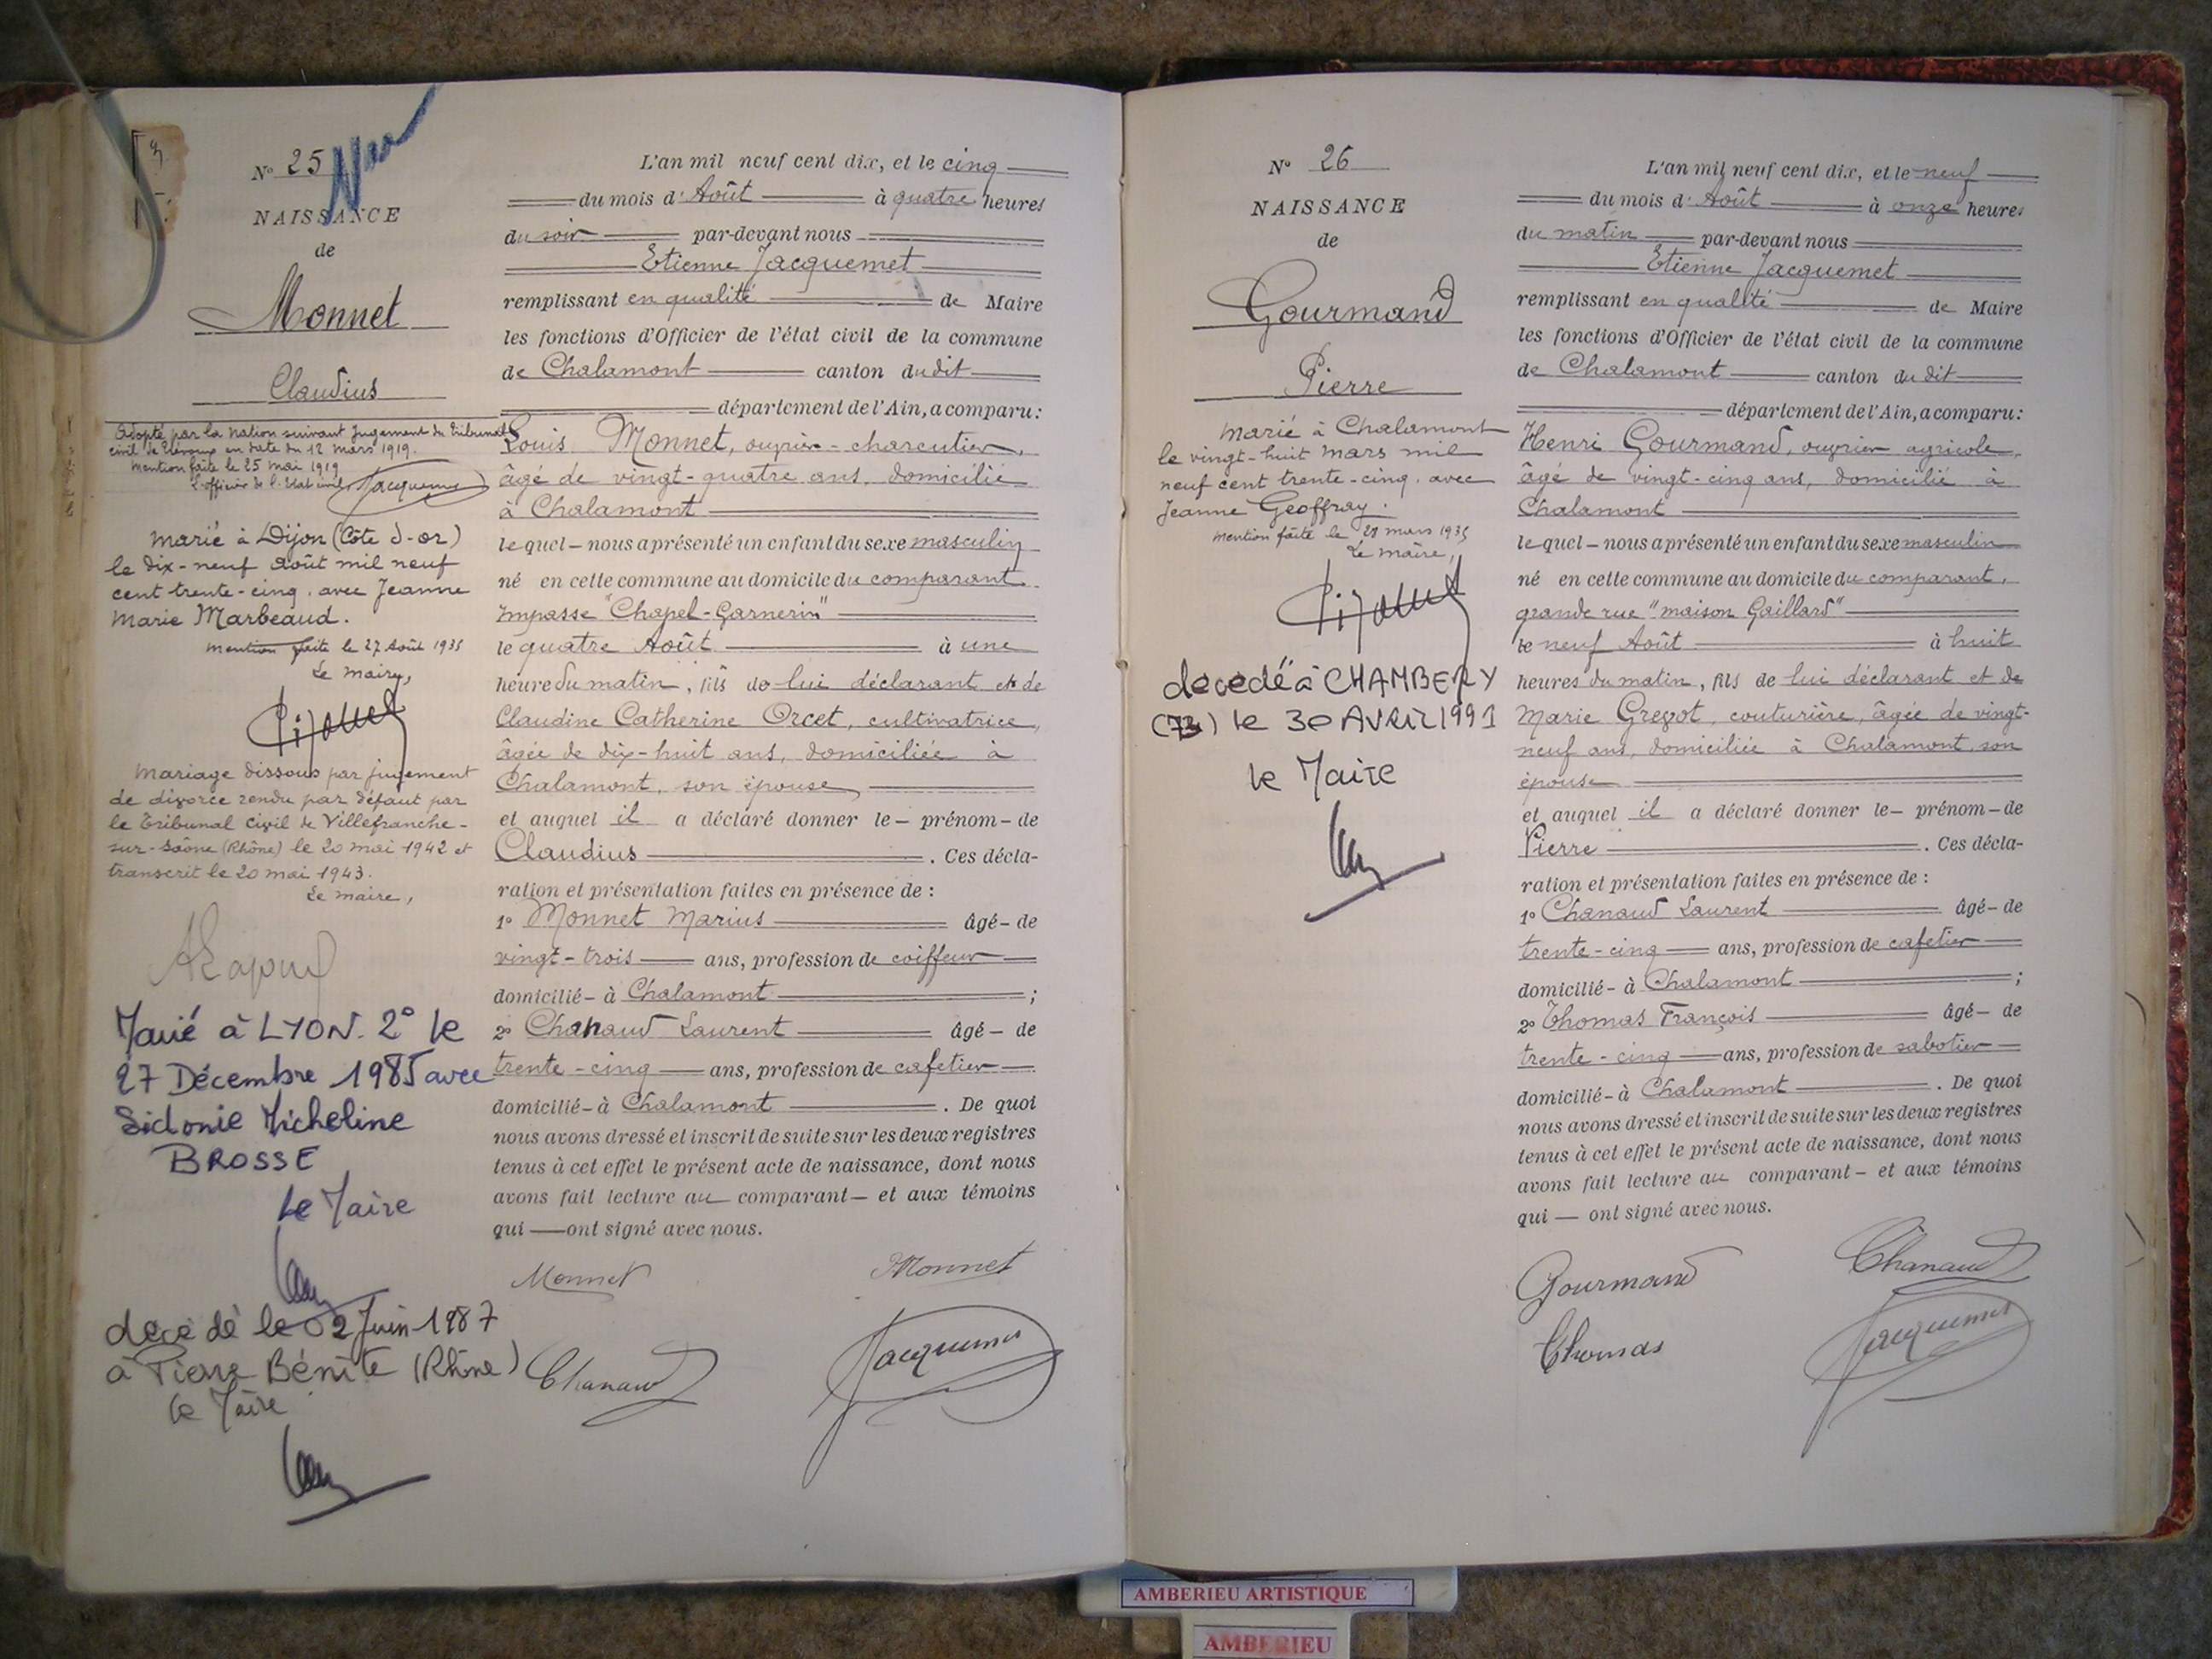 N° 25
NAISSANCE
de
Monnet
Claudius
Adopté par la Nation suivant jugement du Tribunal
civil de Trévoux en date du 12 mars 1919.
Mention faite le 25 mai 1919
L'officier de l'Etat civil Jacquemet
Marié à Dijon (Côte d'or)
le dix-neuf Août mil neuf
cent trente-cinq, avec Jeanne
Marie Marbeaud.
Mention faite le 27 Août 1935
Le maire,
Mariage dissous par jugement
de divorce rendu par défaut par
le Tribunal Civil de Villefranche-
sur-Saône (Rhône) le 20 mai 1942 et
transcrit le 20 mai 1943.
Le maire,
Marié à LYON. 2° le
27 Décembre 1985 avec
Sidonie Micheline
BROSSE
Le Maire
decedé le 02 Juin 1987
à Pierre Bénite (Rhône)
le Maire
L'an mil neuf cent dix, et le cinq
du mois d'Août à quatre heures
du soir par-devant nous
Etienne Jacquemet
remplissant en qualité de Maire
les fonctions d'Officier de l'état civil de la commune
de Chalamont canton du dit
département de l'Ain, a comparu:
Louis Monnet, ouvrier-charcutier,
âgé de vingt-quatre ans, domicilié
à Chalamont
lequel – nous a présenté un enfant du sexe masculin
né en cette commune au domicile du comparant
Impasse "Chapel-Garnerin"
le quatre Août à une
heure du matin, fils de lui déclarant et de
Claudine Catherine Orcet, cultivatrice,
âgée de dix-huit ans, domiciliée à
Chalamont, son épouse
et auquel il a déclaré donner le – prénom – de
Claudius . Ces décla-
ration et présentation faites en présence de :
1° Monnet Marius âgé – de
vingt-trois ans, profession de coiffeur
domicilié – à Chalamont ;
2° Chanaud Laurent âgé – de
trente-cinq ans, profession de cafetier
domicilié – à Chalamont . De quoi
nous avons dressé et inscrit de suite sur les deux registres
tenus à cet effet le présent acte de naissance, dont nous
avons fait lecture au comparant – et aux témoins
qui — ont signé avec nous.
Monnet Monnet
Chanaud Jacquemet
N° 26
NAISSANCE
de
Gourmand
Pierre
Marié à Chalamont
le vingt-huit mars mil
neuf cent trente-cinq, avec
Jeanne Geoffray.
Mention faite le 28 mars 1935
Le maire,
decedé à CHAMBERY
(73) le 30 AVRIL 1991
le Maire
L'an mil neuf cent dix, et le neuf
du mois d'Août à onze heures
du matin par-devant nous
Etienne Jacquemet
remplissant en qualité de Maire
les fonctions d'Officier de l'état civil de la commune
de Chalamont canton du dit
département de l'Ain, a comparu:
Henri Gourmand, ouvrier agricole,
âgé de vingt-cinq ans, domicilié à
Chalamont
lequel – nous a présenté un enfant du sexe masculin
né en cette commune au domicile du comparant,
grande rue "maison Gaillard"
le neuf Août à huit
heures du matin, fils de lui déclarant et de
Marie couturière, âgée de vingt-
neuf ans, domiciliée à Chalamont, son
épouse
et auquel il a déclaré donner le – prénom – de
Pierre . Ces décla-
ration et présentation faites en présence de :
1° Chanaud Laurent âgé – de
trente-cinq ans, profession de cafetier
domicilié – à Chalamont ;
2° Thomas François âgé – de
trente-cinq ans, profession de sabotier
domicilié – à Chalamont . De quoi
nous avons dressé et inscrit de suite sur les deux registres
tenus à cet effet le présent acte de naissance, dont nous
avons fait lecture au comparant – et aux témoins
qui — ont signé avec nous.
Gourmand Chanaud
Thomas Jacquemet
AMBERIEU ARTISTIQUE
AMBERIEU